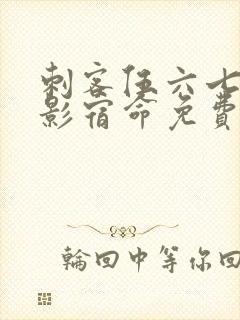 刺客伍六七
影宿命免费
輪回中等你回